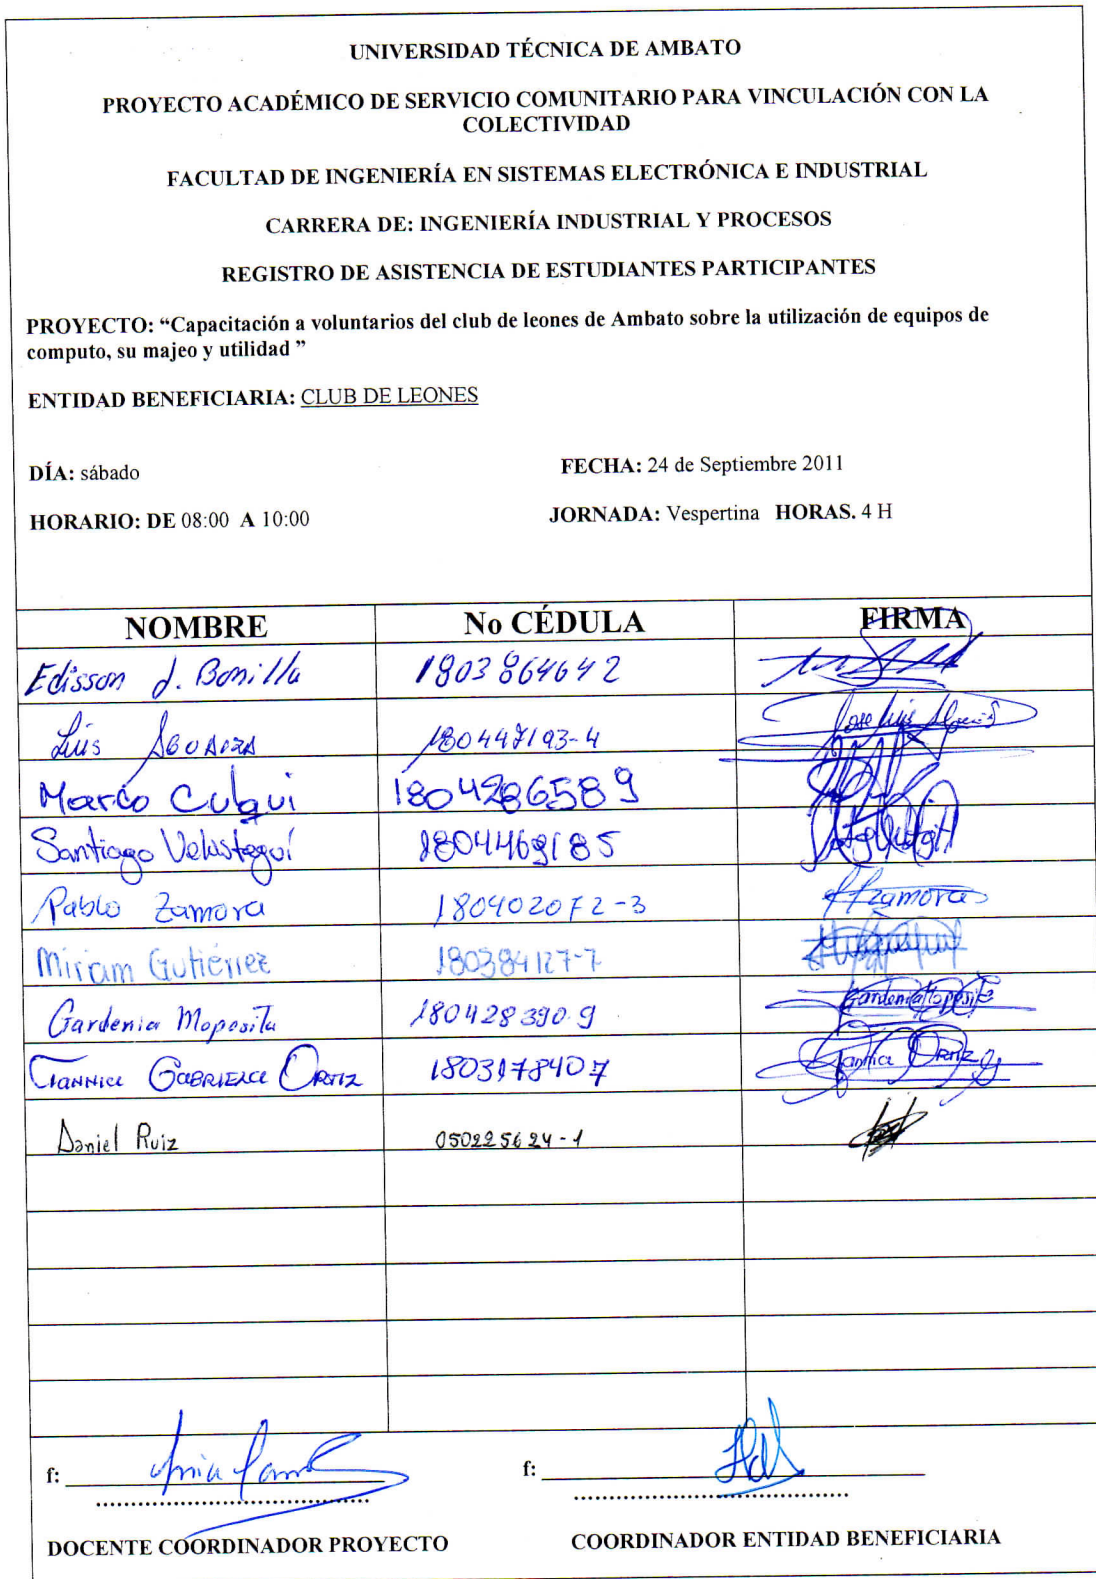 UNIVERSIDAD TÉCNICA DE AMBATO
PROYECTO ACADÉMICO DE SERVICIO COMUNITARIO PARA VINCULACIÓN CON LA
COLECTIVIDAD
FACULTAD DE INGENIERÍA EN SISTEMAS ELECTRÓNICA E INDUSTRIAL
CARRERA DE: INGENIERÍA INDUSTRIAL Y PROCESOS
REGISTRO DE ASISTENCIA DE ESTUDIANTES PARTICIPANTES
PROYECTO: “Capacitación a voluntarios del club de leones de Ambato sobre la utilización de equipos de
computo, su majeo y utilidad ”
ENTIDAD BENEFICIARIA: CLUB DE LEONES
DÍA: sábado FECHA: 24 de Septiembre 2011
HORARIO: DE 08:00 A 10:00 JORNADA: Vespertina HORAS. 4 H
NOMBRE No CÉDULA FIRMA
Edisson J. Bonilla 1803864642
Luis 180447193-4 Jose Luis
Marco Culqui 1804286589
Santiago Velastegui 1804469185
Pablo Zamora 180402072-3 Zamora
Miriam Gutiérrez 180384127-7
Gardenia Moposita 180428390-9 Gardenia Moposita
Tannia Gabriela Ortiz 1803178407 Tannia Ortiz G
Daniel Ruiz 050225624-1
f: f:
DOCENTE COORDINADOR PROYECTO COORDINADOR ENTIDAD BENEFICIARIA